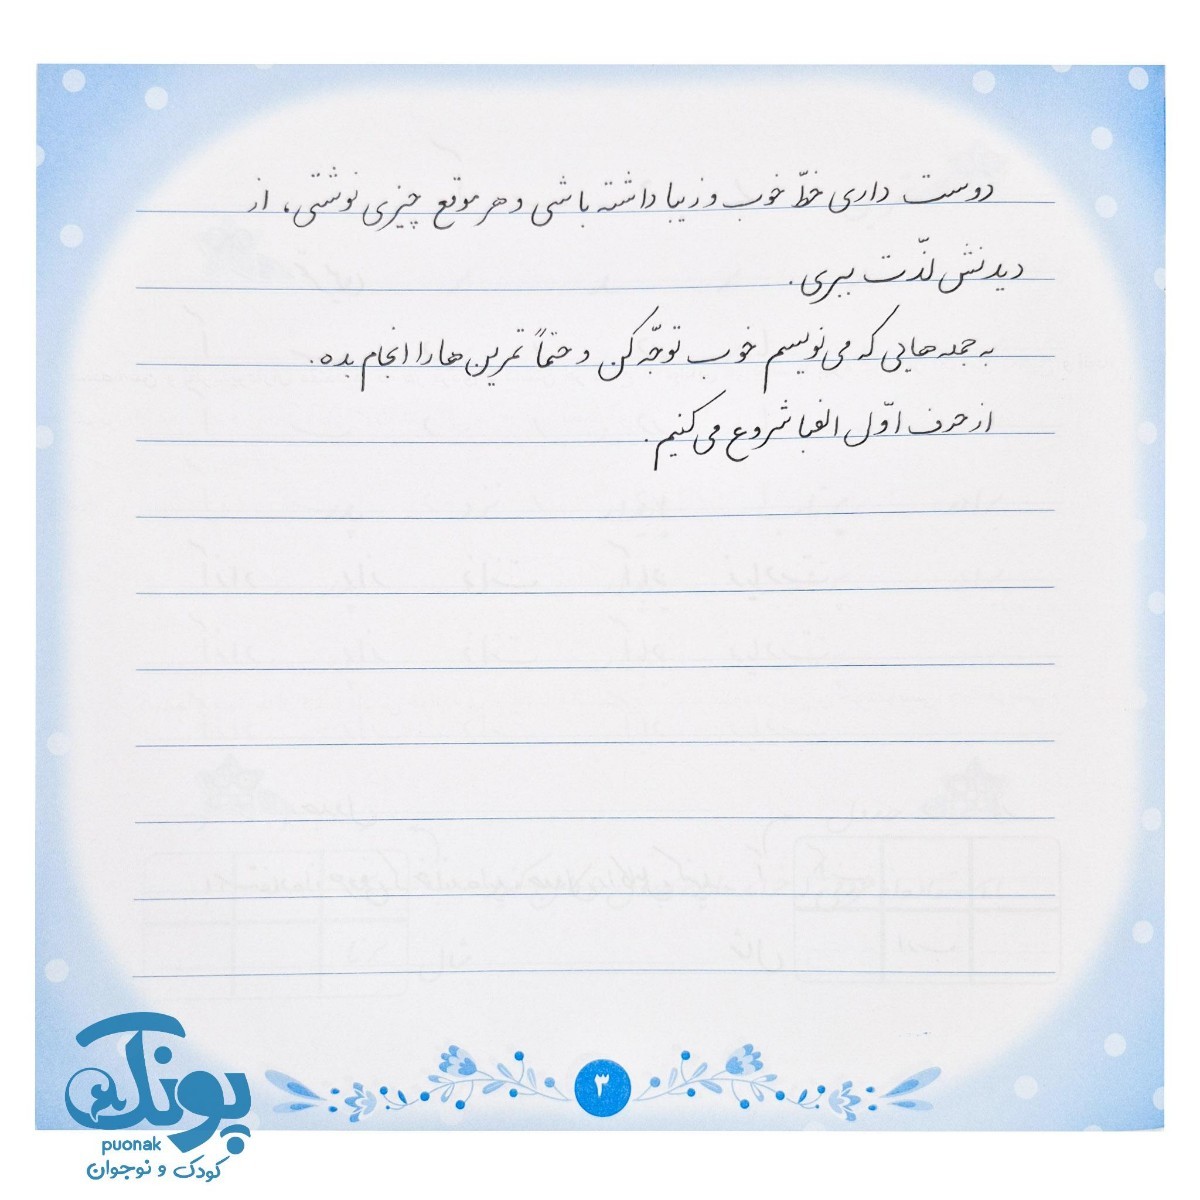 دوست داری خطّ خوب و زیبا داشته باشی و هر موقع چیزی نوشتی، از
دیدنش لذّت ببری.
به جمله‌هایی که می‌نویسم خوب توجّه کن و حتماً تمرین‌ها را انجام بده.
از حرف اوّل الفبا شروع می‌کنیم.
۳
پونک
puonak
کودک و نوجوان